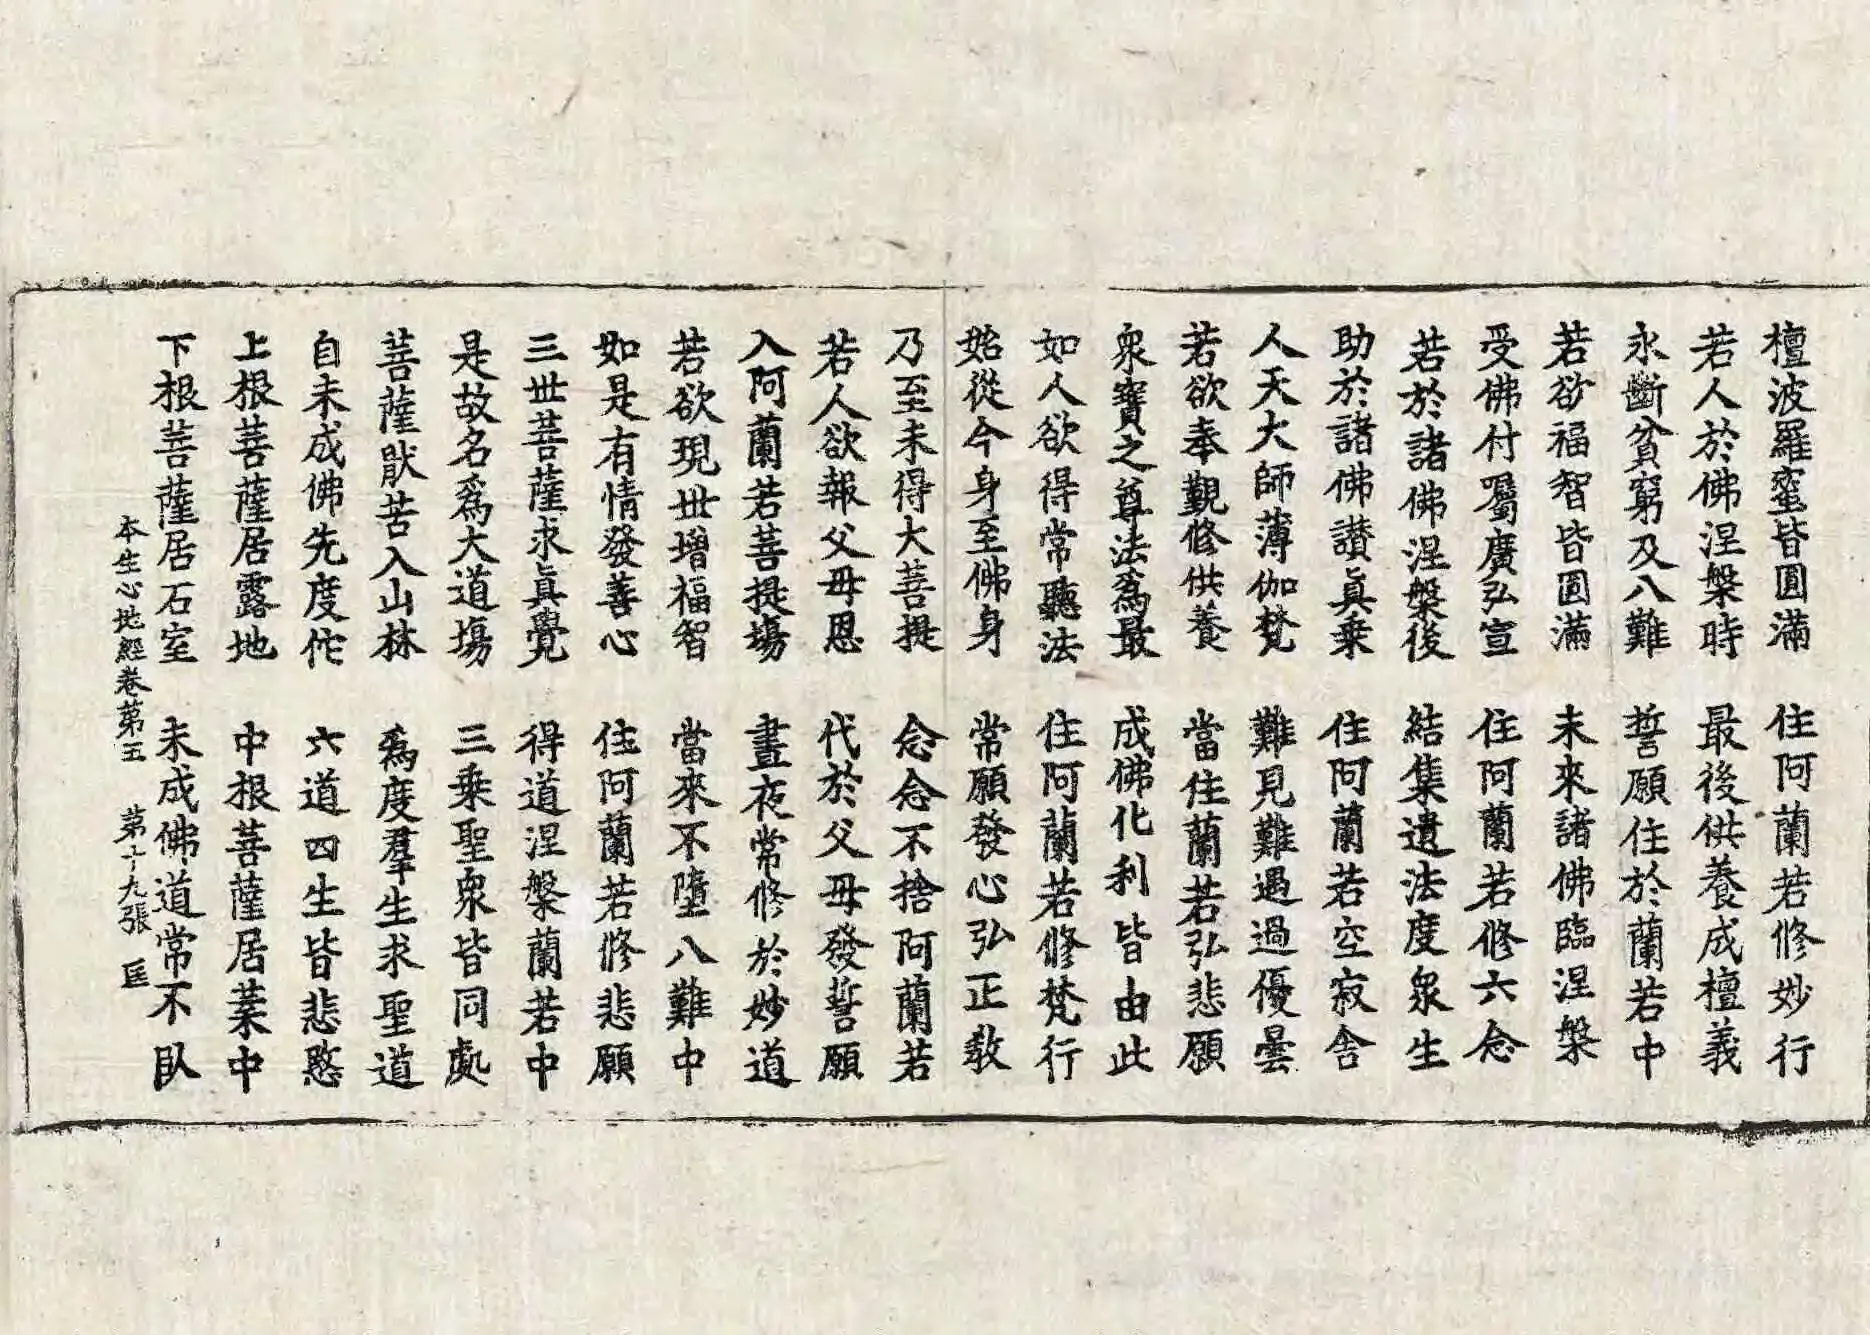 檀波羅蜜皆圓滿 住阿蘭若修妙行
若人於佛涅槃時 最後供養成檀義
永斷貧窮及八難 誓願住於蘭若中
若欲福智皆圓滿 未來諸佛臨涅槃
受佛付囑廣弘宣 住阿蘭若修六念
若於諸佛涅槃後 結集遺法度衆生
助於諸佛讃眞乗 住阿蘭若空寂舎
人天大師薄伽梵 難見難遇過優曇
若欲奉覲修供養 當住蘭若弘悲願
衆寶之尊法爲最 成佛化利皆由此
如人欲得常聽法 住阿蘭若修梵行
始從今身至佛身 常願發心弘正教
乃至未得大菩提 念念不捨阿蘭若
若人欲報父母恩 代於父母發誓願
入阿蘭若菩提塲 晝夜常修於妙道
若欲現世增福智 當來不墮八難中
如是有情發善心 住阿蘭若修悲願
三世菩薩求眞覺 得道涅槃蘭若中
是故名爲大道塲 三乗聖衆皆同處
菩薩猒苦入山林 爲度羣生求聖道
自未成佛先度他 六道四生皆悲愍
上根菩薩居露地 中根菩薩居葉中
下根菩薩居石室 未成佛道常不臥
本生心地經卷第五 第十九張 匡